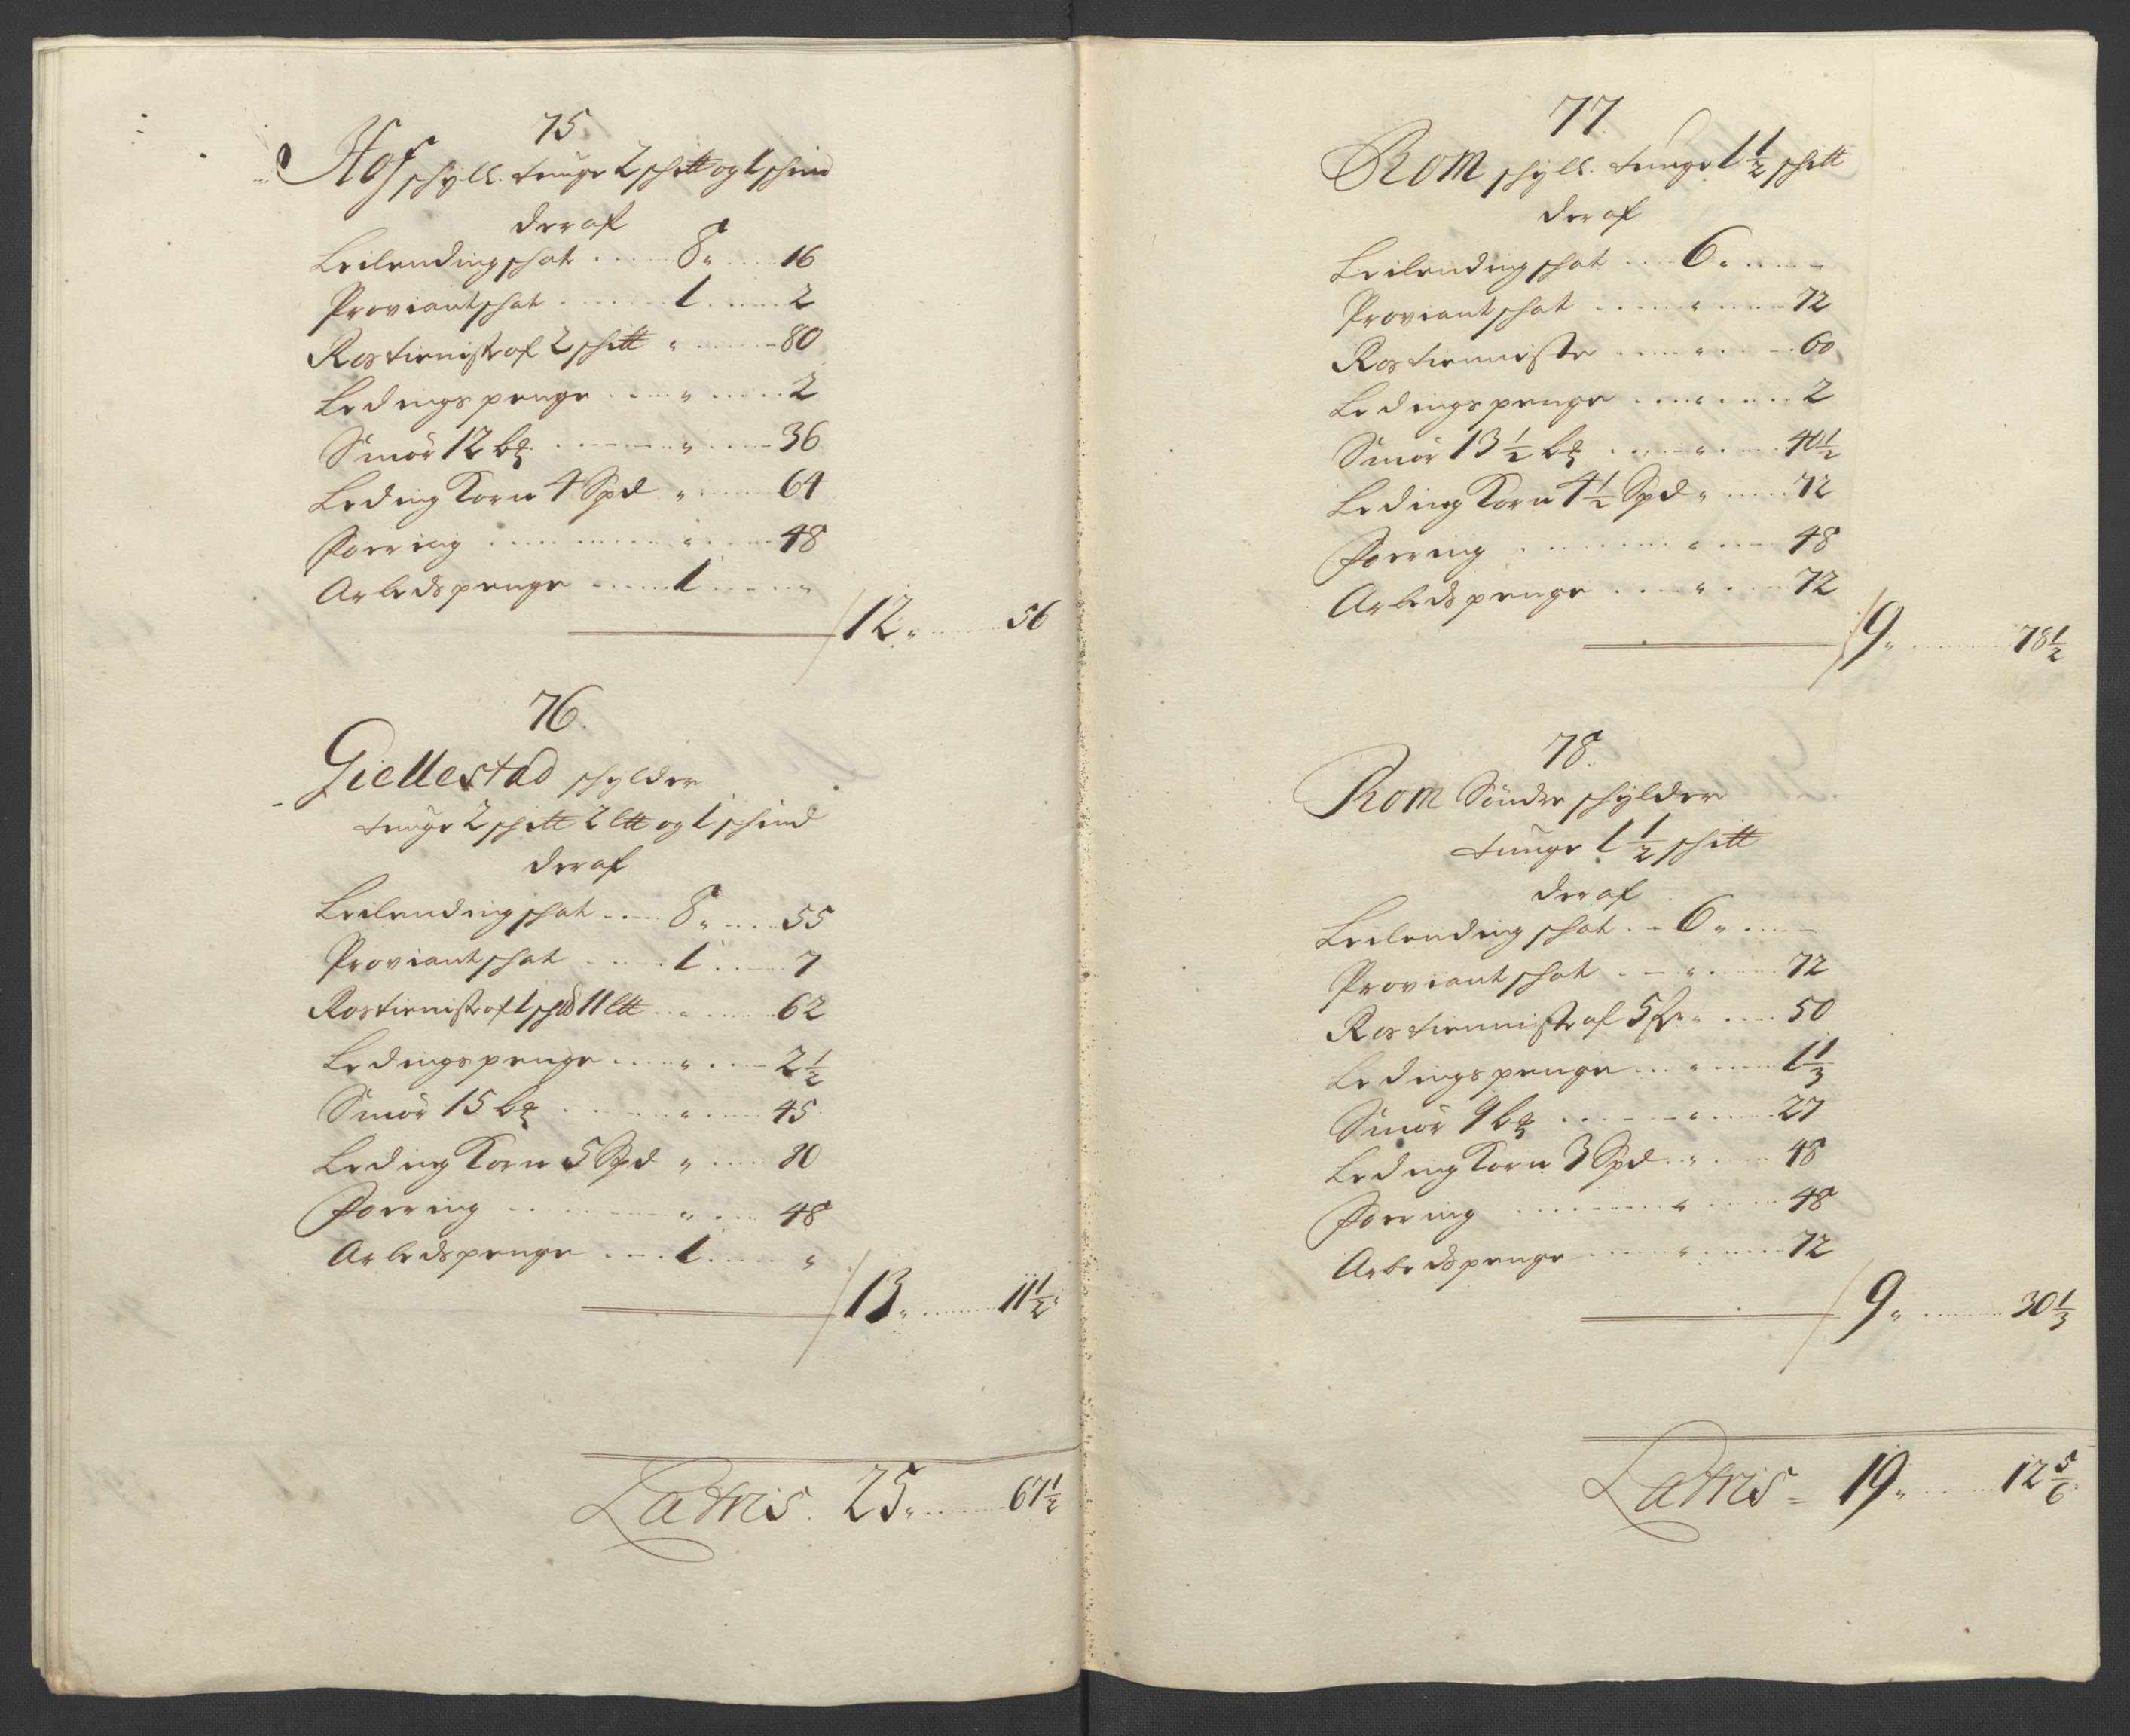 75.
Hof schyll. tunge 2 schitt og 1 schind
deraf
Leilending schat .... 8 " .... 16
Proviant schat ...... 1 .... 2
Rostieniste af 2 schitt " .... 80
Ledings penge .... " .... 2
Smör 12 b℔ .... " .... 36
Leding Korn 4 Spd " .... 64
Foering .... " .... 48
Arbeds penge .... 1 .... "
/ 12 " .... 56
76.
Giellestad schylder
tunge 2 schitt 2 ltt og 1 schind
deraf
Leilending schat .... 8 " .... 55
Proviant schat .... 1 .... 7
Rostieniste af 1 sch℔ 11 ltt .. " .... 62
Ledings penge .... " .... 2 1/2
Smör 15 b℔ .... " .... 45
Leding Korn 5 Spd " .... 80
Foering .... " .... 48
Arbeds penge .... 1 .... "
/ 13 " .... 11 1/2
Latris. 25 " .... 67 1/2
77.
Rom schyll. tunge 1 1/2 schitt
deraf
Leilending schat .... 6 " .... -
Proviant schat .... " .... 72
Rostienniste .... " .... 60
Ledings penge .... " .... 2
Smör 13 1/2 b℔ .... " .... 40 1/2
Leding Korn 4 1/2 Spd " .... 72
Foering .... " .... 48
Arbeds penge .... " .... 72
/ 9 " .... 78 1/2
78.
Rom Söndre schylder
tunge 1 1/2 schitt
deraf
Leilending schat .. 6 " .... -
Proviant schat .... " .... 72
Rostienniste af 5 fr " .... 50
Ledings penge .... " .... 1 1/3
Smör 9 b℔ .... " .... 27
Leding Korn 3 Spd .. " .... 48
Foering .... " .... 48
Arbeds penge .... " .... 72
/ 9 " .... 30 1/3
Latris = 19 " .... 12 5/6